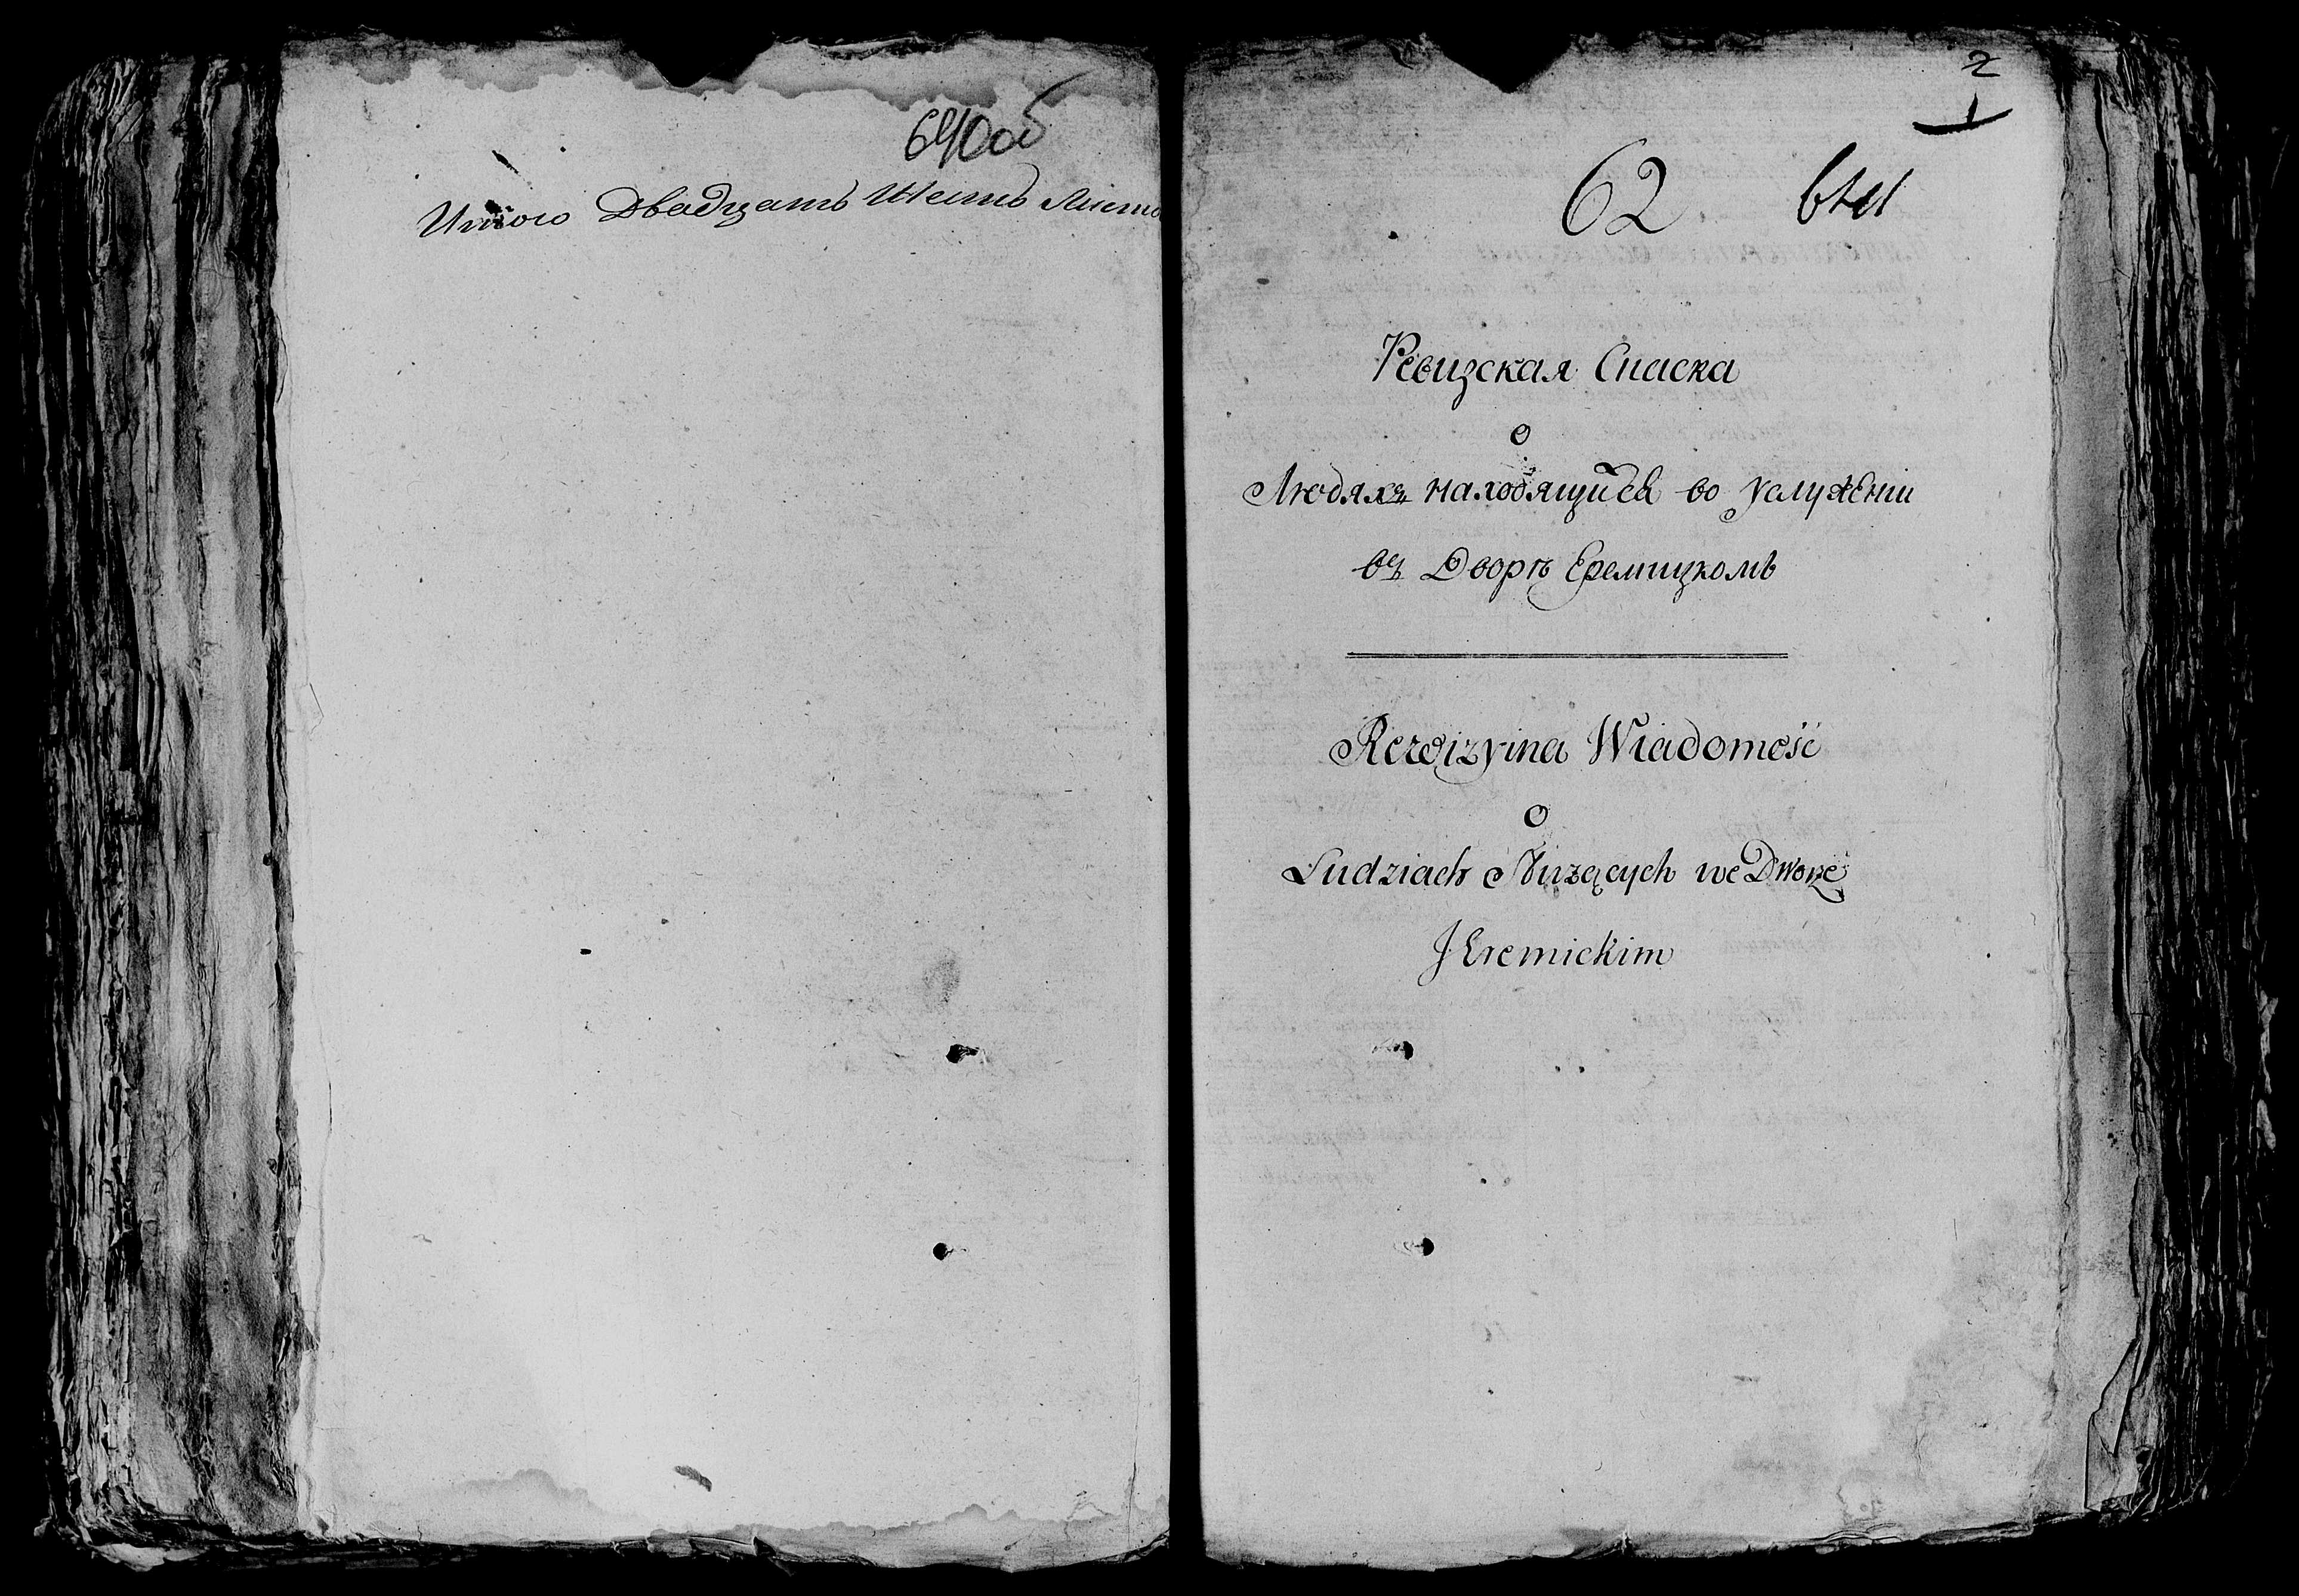 640об
Итого Двадцать Шесть Листо
2
1
62 641
Ревизская Снаска
о
Людяхъ находящися во услуженіи
въ Дворѣ Еремицкомъ
Rewizyina Wiadomość
о
Ludziach Służących we Dworze
JEremickim